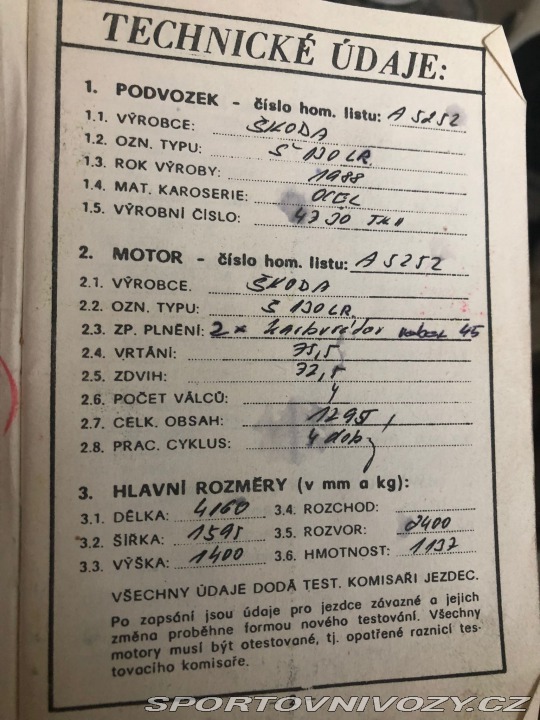 TECHNICKÉ ÚDAJE:
1. PODVOZEK - číslo hom. listu: A 5252
1.1. VÝROBCE: ŠKODA
1.2. OZN. TYPU: Š 130 LR
1.3. ROK VÝROBY: 1988
1.4. MAT. KAROSERIE: OCEL
1.5. VÝROBNÍ ČÍSLO:
2. MOTOR - číslo hom. listu: A 5252
2.1. VÝROBCE. ŠKODA
2.2. OZN. TYPU: Š 130 LR
2.3. ZP. PLNĚNÍ: 2 x karburátor 45
2.4. VRTÁNÍ: 75,5
2.5. ZDVIH: 72,5
2.6. POČET VÁLCŮ: 4
2.7. CELK. OBSAH: 1295
2.8. PRAC. CYKLUS: 4 dob
3. HLAVNÍ ROZMĚRY (v mm a kg):
3.1. DÉLKA: 4160 3.4. ROZCHOD:
3.2. ŠÍŘKA: 1595 3.5. ROZVOR: 2400
3.3. VÝŠKA: 1400 3.6. HMOTNOST: 1137
VŠECHNY ÚDAJE DODÁ TEST. KOMISAŘI JEZDEC.
Po zapsání jsou údaje pro jezdce závazné a jejich
změna proběhne formou nového testování. Všechny
motory musí být otestované, tj. opatřené raznicí tes-
tovacího komisaře.
SPORTOVNIVOZY.CZ